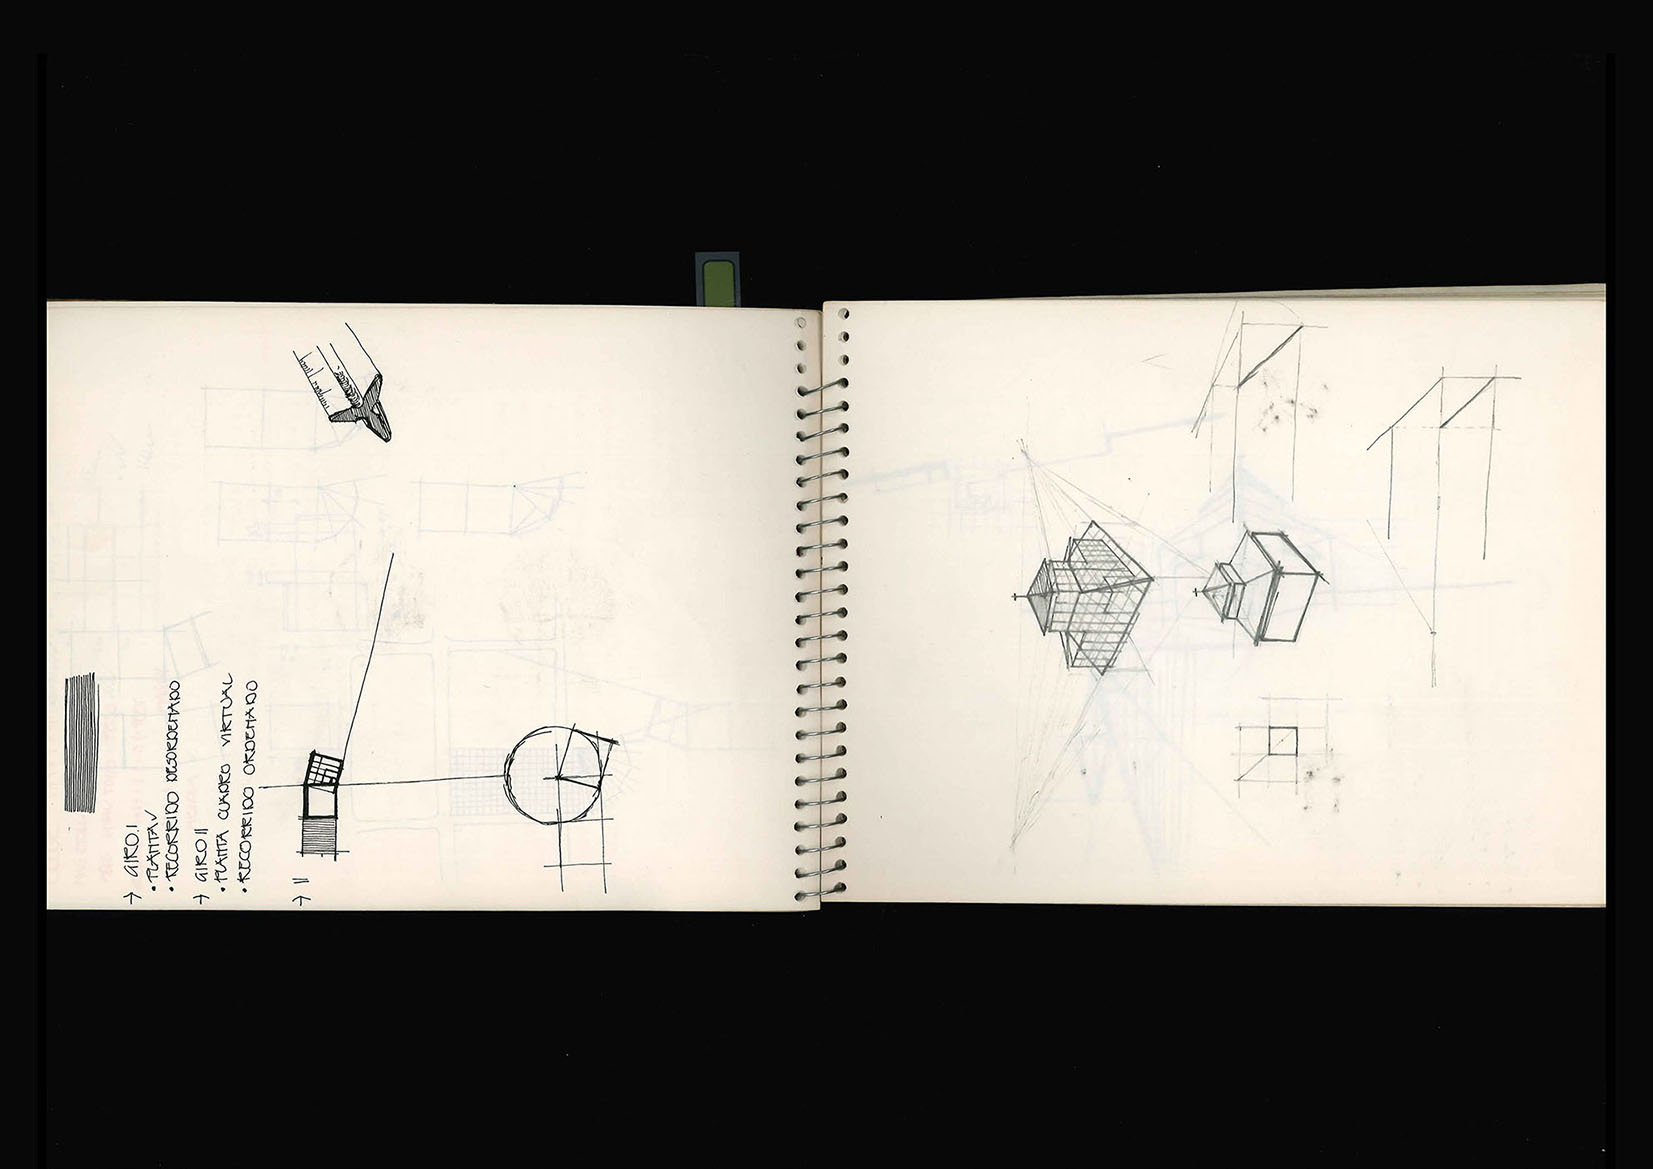 → GIRO I
• PLANTA
• RECORRIDO DESORDENADO
→ GIRO II
• PLANTA CUADRO VIRTUAL
• RECORRIDO ORDENADO
→ II